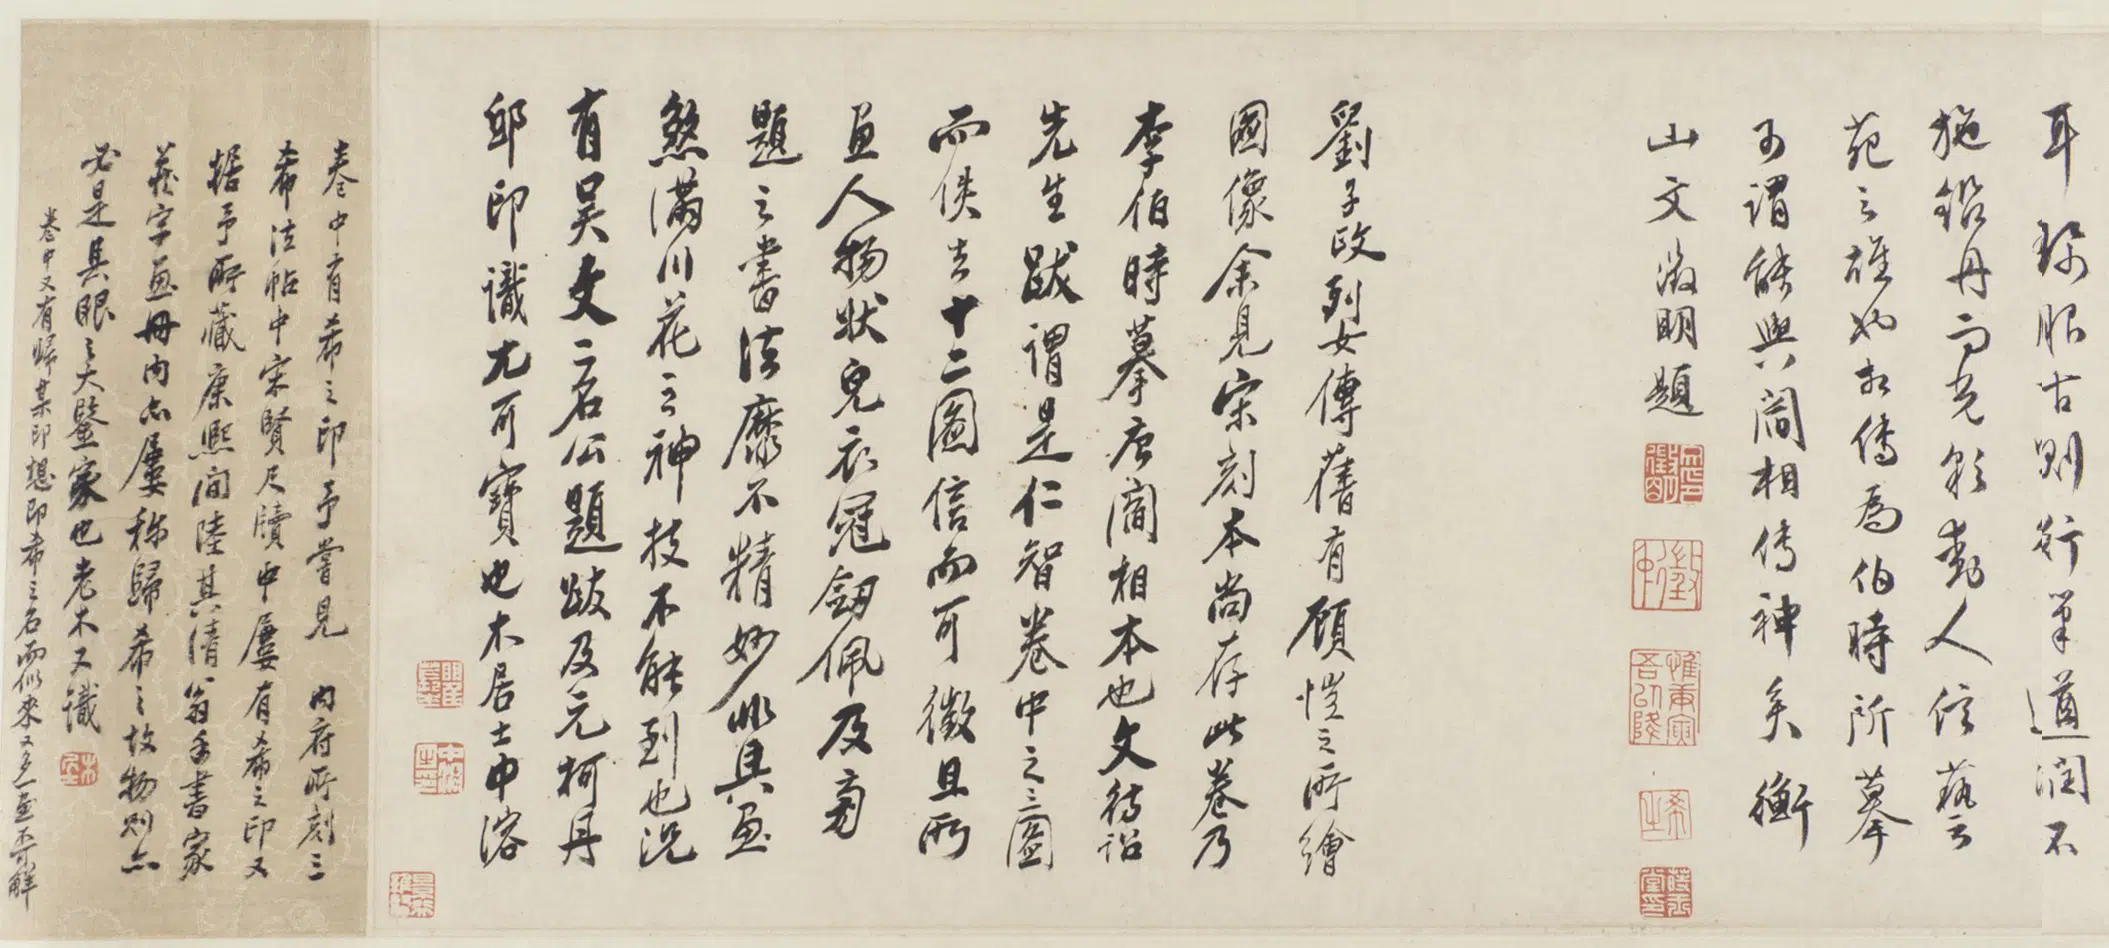 耳眼古則行筆遒潤不
施鉛丹而光彩動人信藝
苑之雄也相傳為伯時所摹
可謂能與閻相傳神矣衡
山文徵明題
劉子政列女傳舊有顧愷之所繪
國像余見宋刻本尚存此卷乃
李伯時摹唐閻相本也文待詔
先生跋謂是仁智卷中之三圖
而佚去十二圖信而可徵且所
畫人物狀皃衣冠劒佩及旁
題之書法靡不精妙非具畫
煞滿川花之神技不能到也況
有吴文二名公題跋及元柯丹
邱印識尤可寶也木居士申涵
卷中有希之印予嘗見 内府所刻三
希法帖中宋賢尺牘中屢有希之印又
據予所藏康熙間陸其清翁手書家
藏字畫冊内亦屢称歸希之故物則亦
必是具眼之大鑒家也老木又識
卷中又有歸某印想即希之名而似來又似並不可解